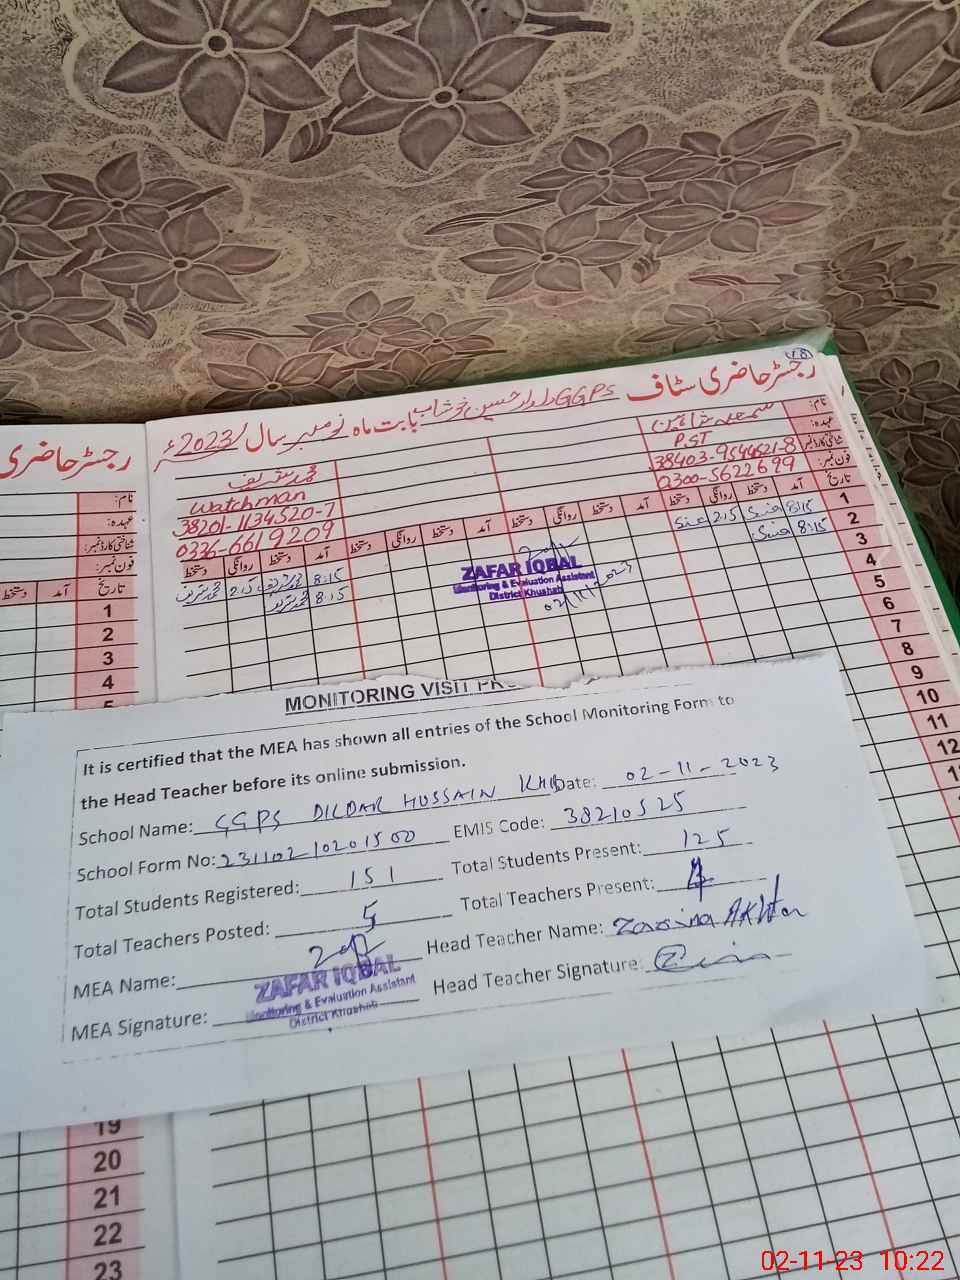 78
رجسٹر حاضری سٹاف GGPS دلدار حسین خوشاب بابت ماہ نومبر سال 2023ء
رجسٹر حاضری
نام:
عہدہ: P.ST
شناختی کارڈ نمبر: 38403-9544621-8
فون نمبر: 0300-5622699
محمد شریف
Watchman
38201-1134520-7
0336-6619209
تاریخ آمد دستخط روانگی دستخط آمد دستخط روانگی دستخط آمد دستخط روانگی دستخط
1 8:15 2:15 8:15 محمد شریف 2:15 محمد شریف
2 8:15 8:15 محمد شریف
3
4
5
6
7
8
9
10
11
12
ZAFAR IQBAL
Monitoring & Evaluation Assistant
District Khushab
02/11/2023
نام:
عہدہ:
شناختی کارڈ نمبر:
فون نمبر:
تاریخ آمد دستخط
1
2
3
4
MONITORING VISIT
It is certified that the MEA has shown all entries of the School Monitoring Form to
the Head Teacher before its online submission.
School Name: GGPS DILDAR HUSSAIN KHB Date: 02-11-2023
School Form No: 23110210201500 EMIS Code: 38210525
Total Students Registered: 151 Total Students Present: 125
Total Teachers Posted: 5 Total Teachers Present: 4
MEA Name: Head Teacher Name: Zarina Akhtar
MEA Signature: Head Teacher Signature:
ZAFAR IQBAL
Monitoring & Evaluation Assistant
District Khushab
19
20
21
22
23
02-11-23 10:22